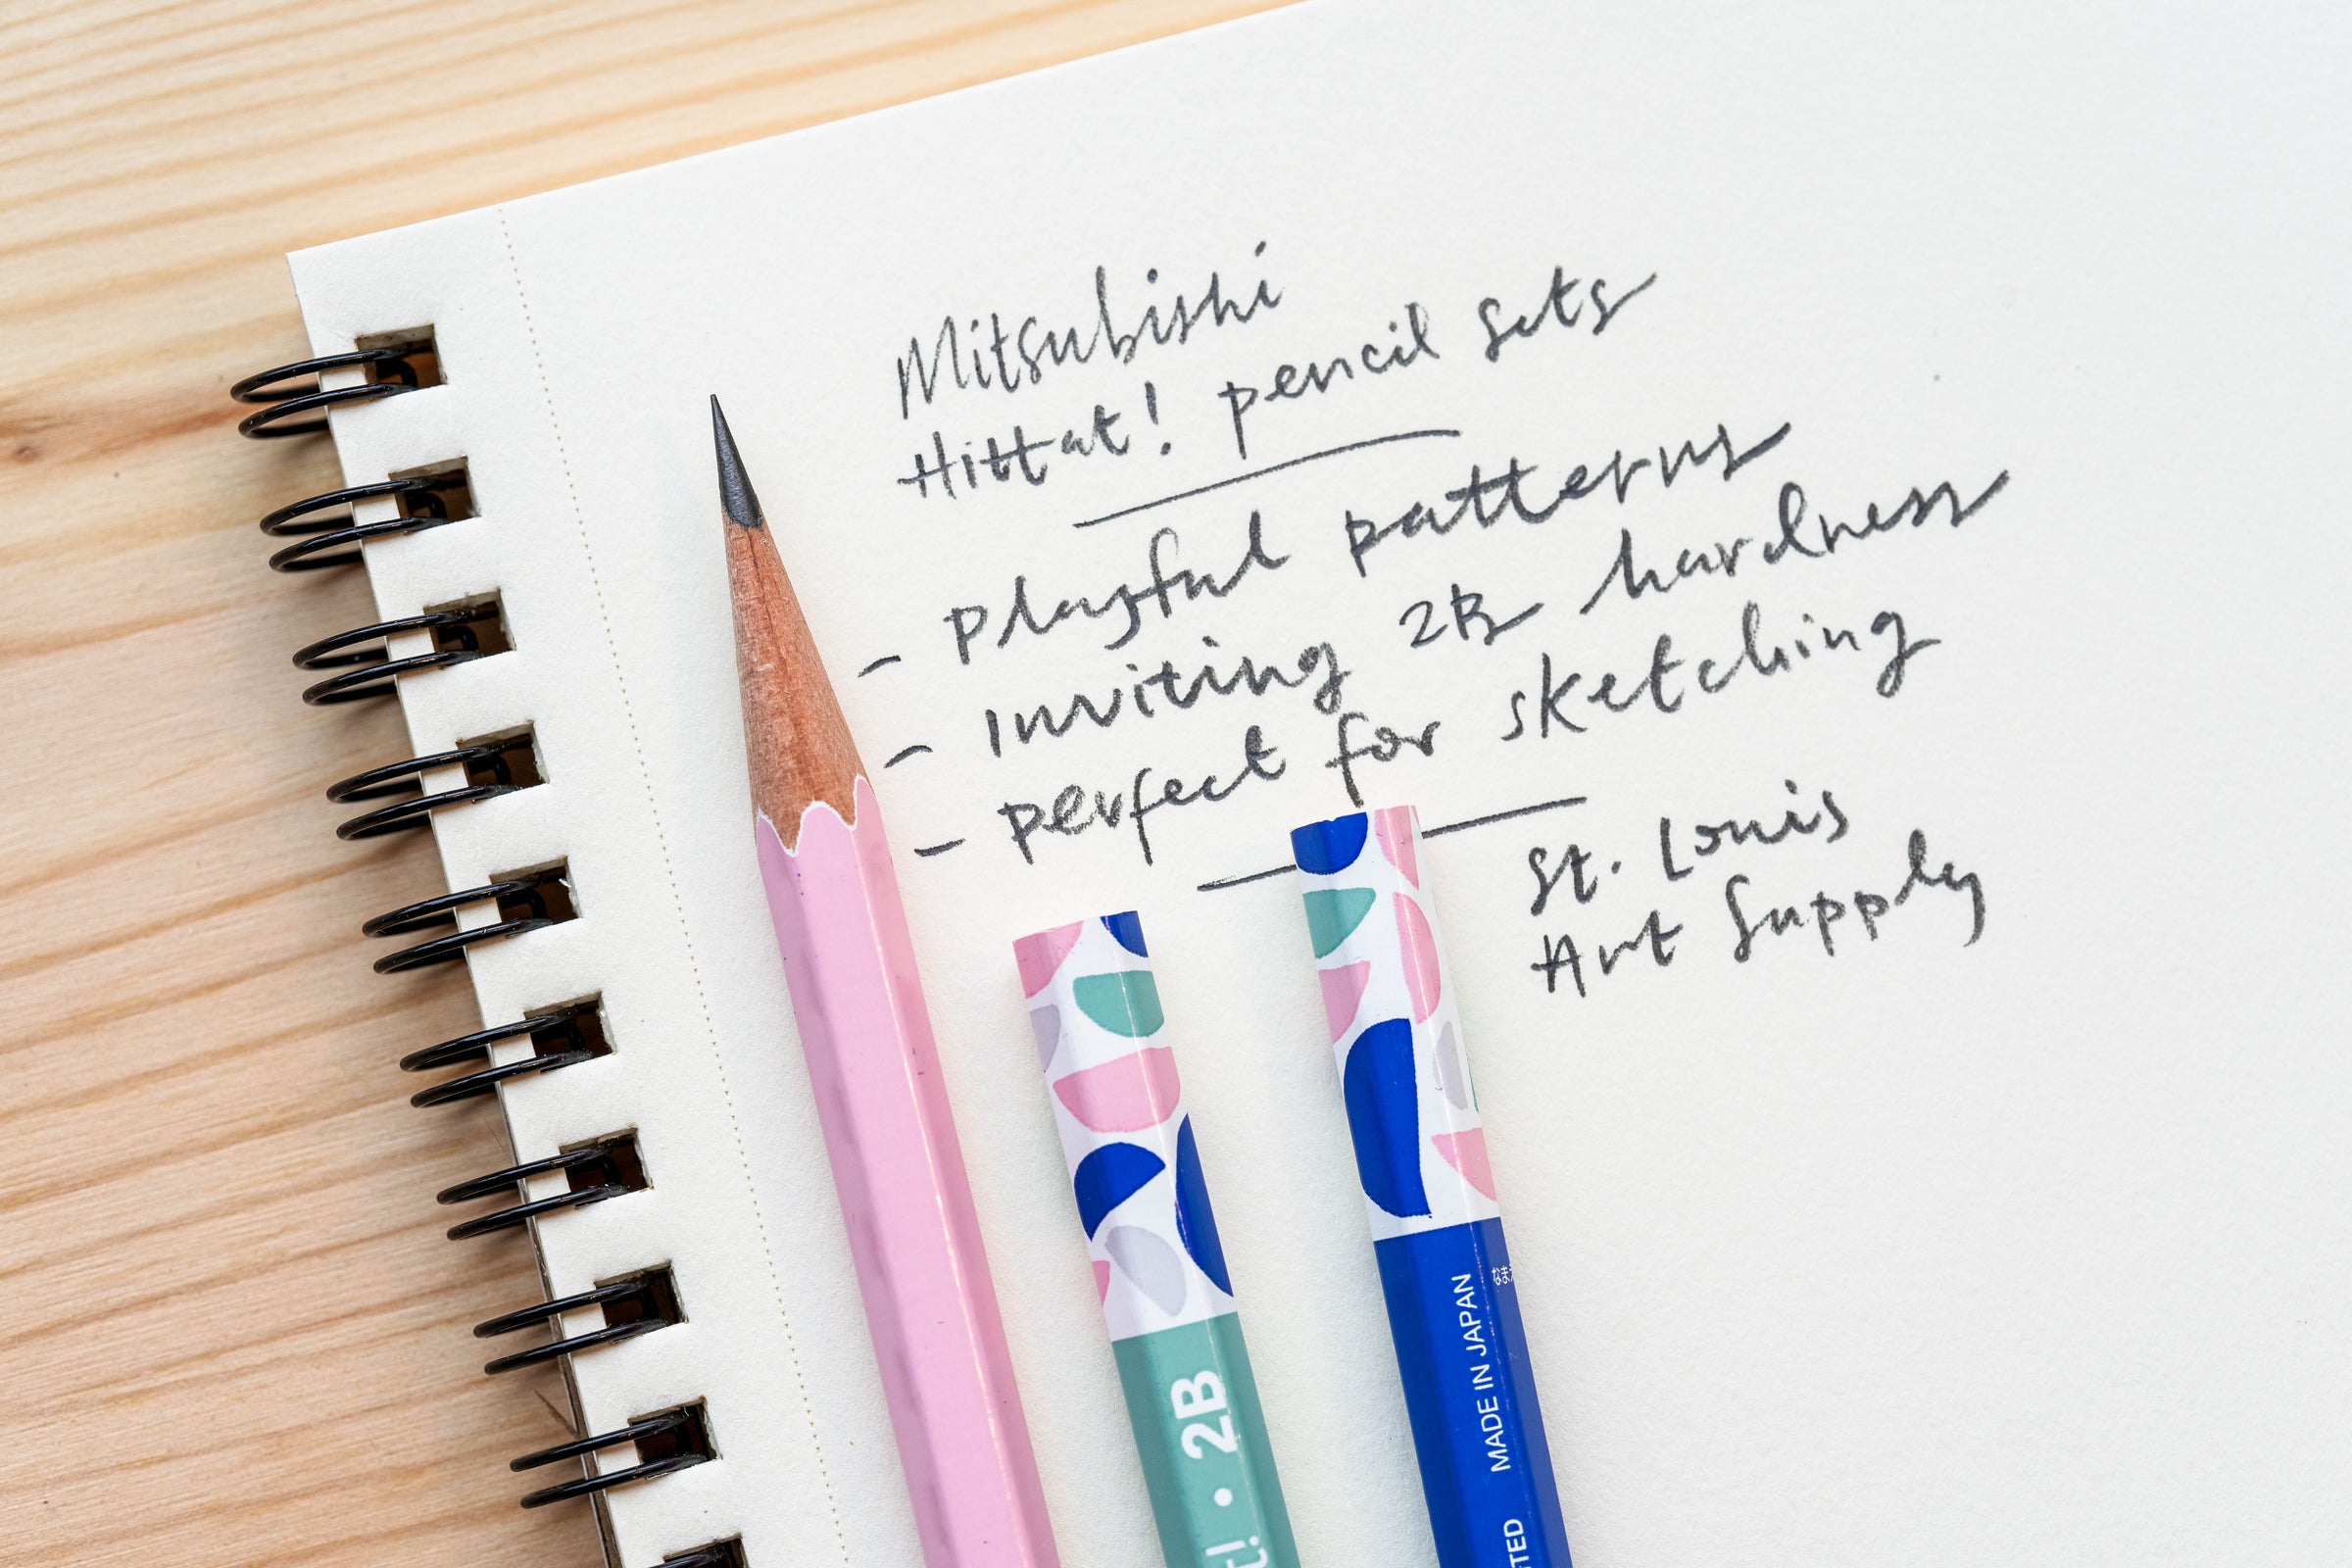 Mitsubishi
Hittat! pencil sets
- playful patterns
- inviting 2B hardness
- perfect for sketching
St. Louis
Art Supply
t! · 2B
MADE IN JAPAN